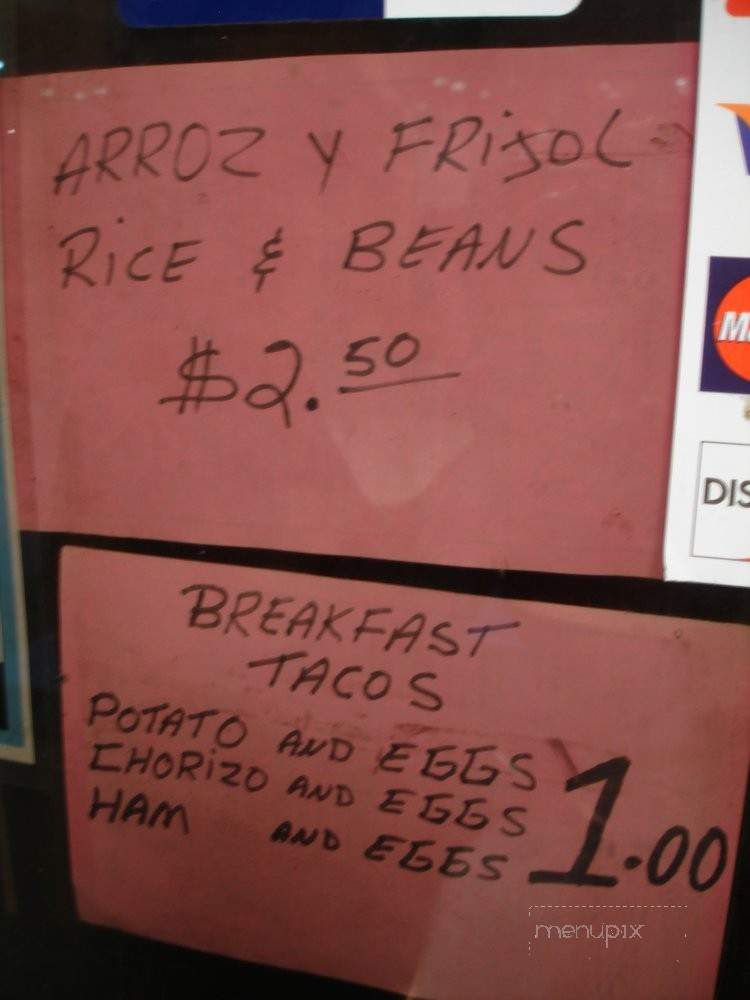 ARROZ Y FRIJOL
RICE & BEANS
$2.50
BREAKFAST
TACOS
POTATO AND EGGS
CHORIZO AND EGGS
HAM AND EGGS
1.00
menupix